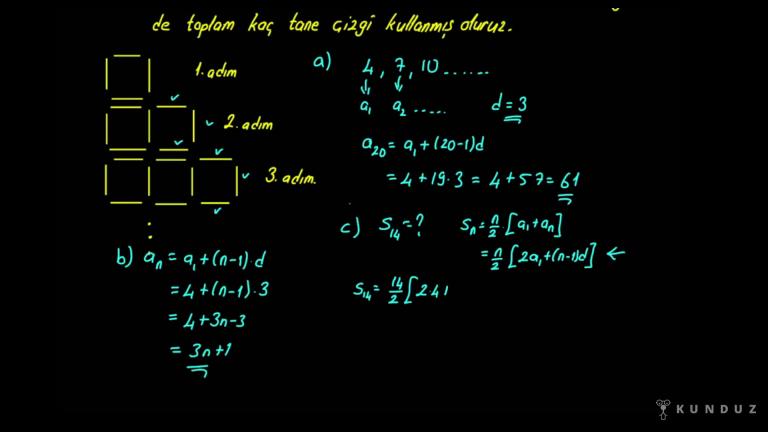 de toplam kaç tane çizgi kullanmış oluruz.
1. adım
2. adım
3. adım.
a) 4, 7, 10 ......
a₁ a₂ ..... d = 3
a₂₀ = a₁ + (20-1)d
= 4 + 19.3 = 4 + 57 = 61
b) aₙ = a₁ + (n-1).d
= 4 + (n-1).3
= 4 + 3n - 3
= 3n + 1
c) S₁₄ = ? Sₙ = n/2 . [a₁ + aₙ]
= n/2 [2a₁ + (n-1)d] ←
S₁₄ = 14/2 [2.4
KUNDUZ